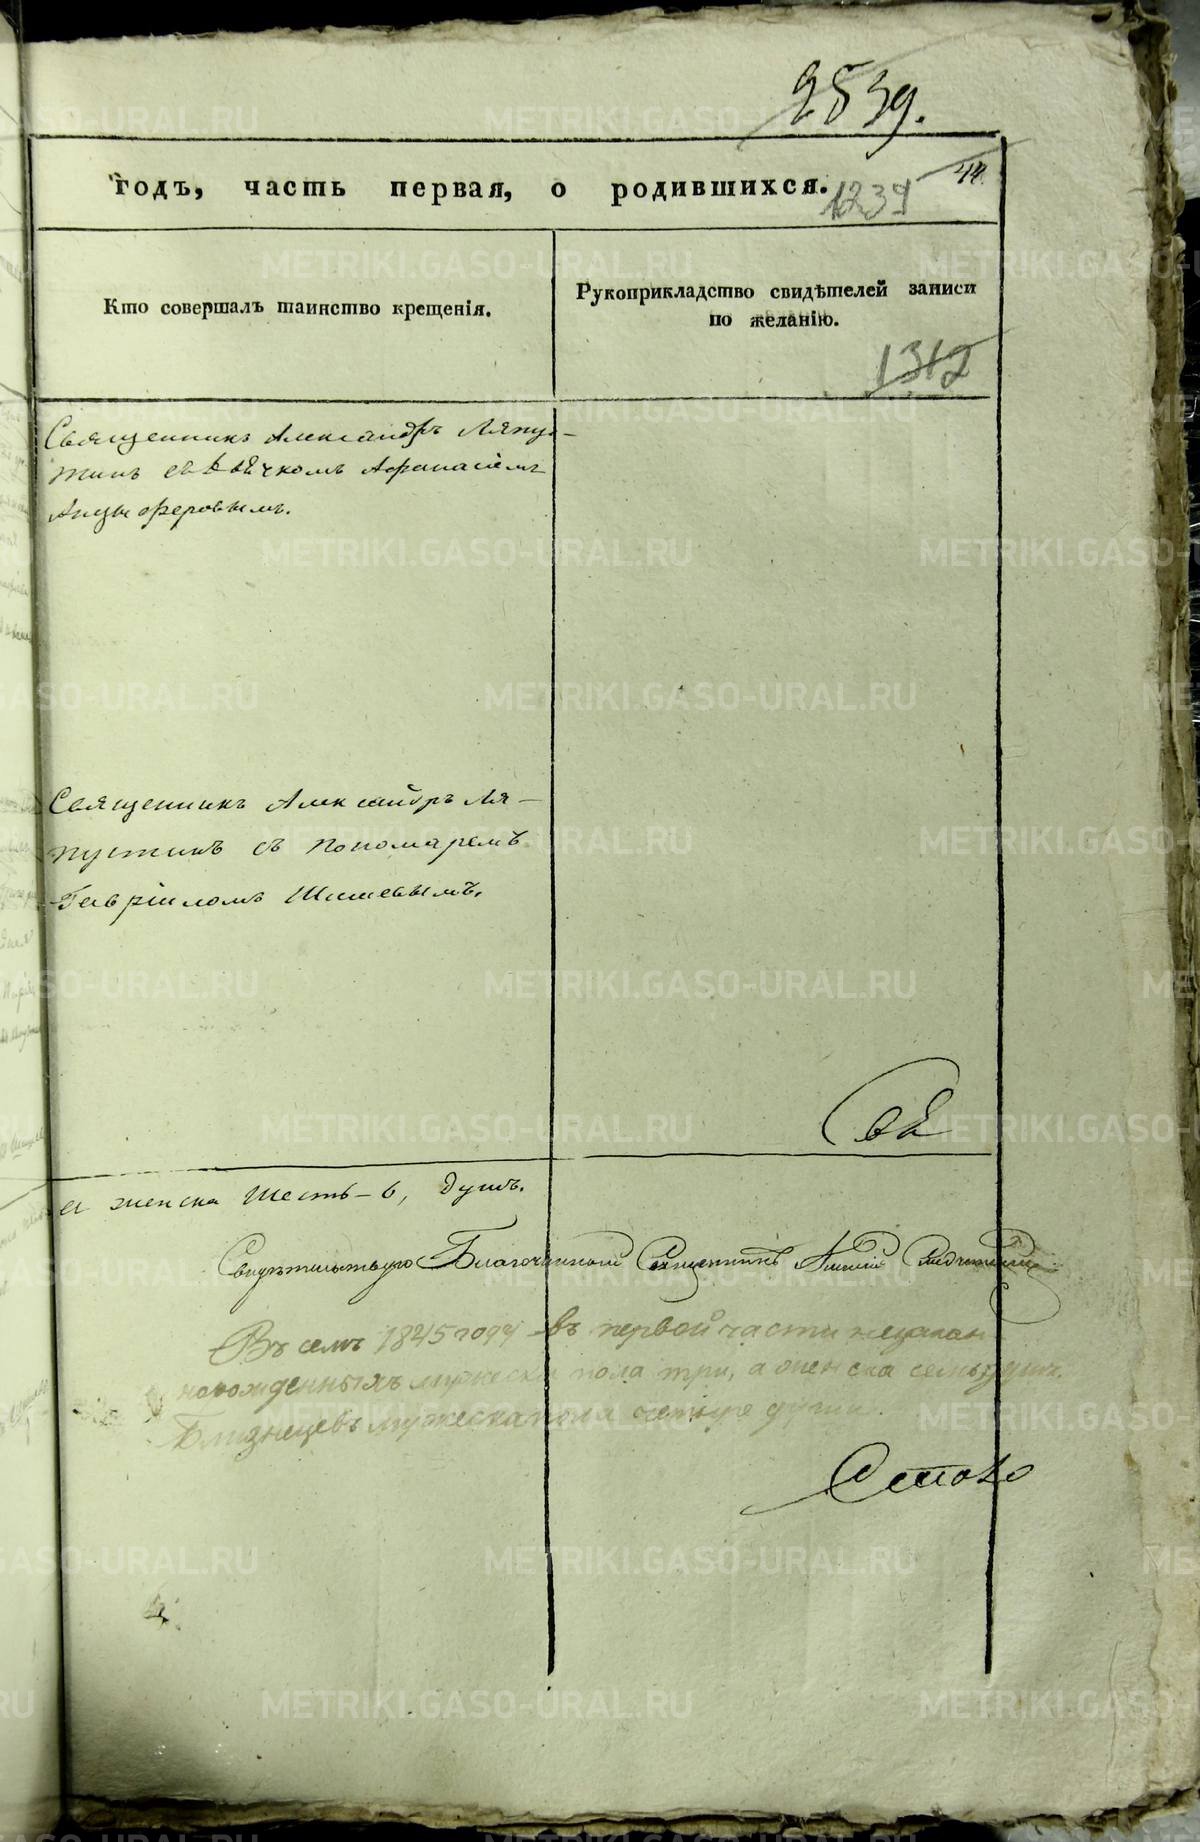 2539.
44.
годъ, часть первая, о родившихся.
1239
Кто совершалъ таинство крещенія.
Рукоприкладство свидѣтелей записи
по желанію.
1312
Священникъ Александръ Ляпу-
тинъ съ дьячкомъ Афанасіемъ
Анцыферовымъ.
Священникъ Александръ Ля-
пустинъ съ пономаремъ
Гавріиломъ Шишевымъ.
а женска шесть - 6, душъ.
Свидѣтельствую Благочинный Священникъ
Въ семъ 1845 году въ первой части
новожденныхъ мужеска пола три, а женска семь душъ.
Близнецевъ мужеска пола четыре души.
METRIKI.GASO-URAL.RU